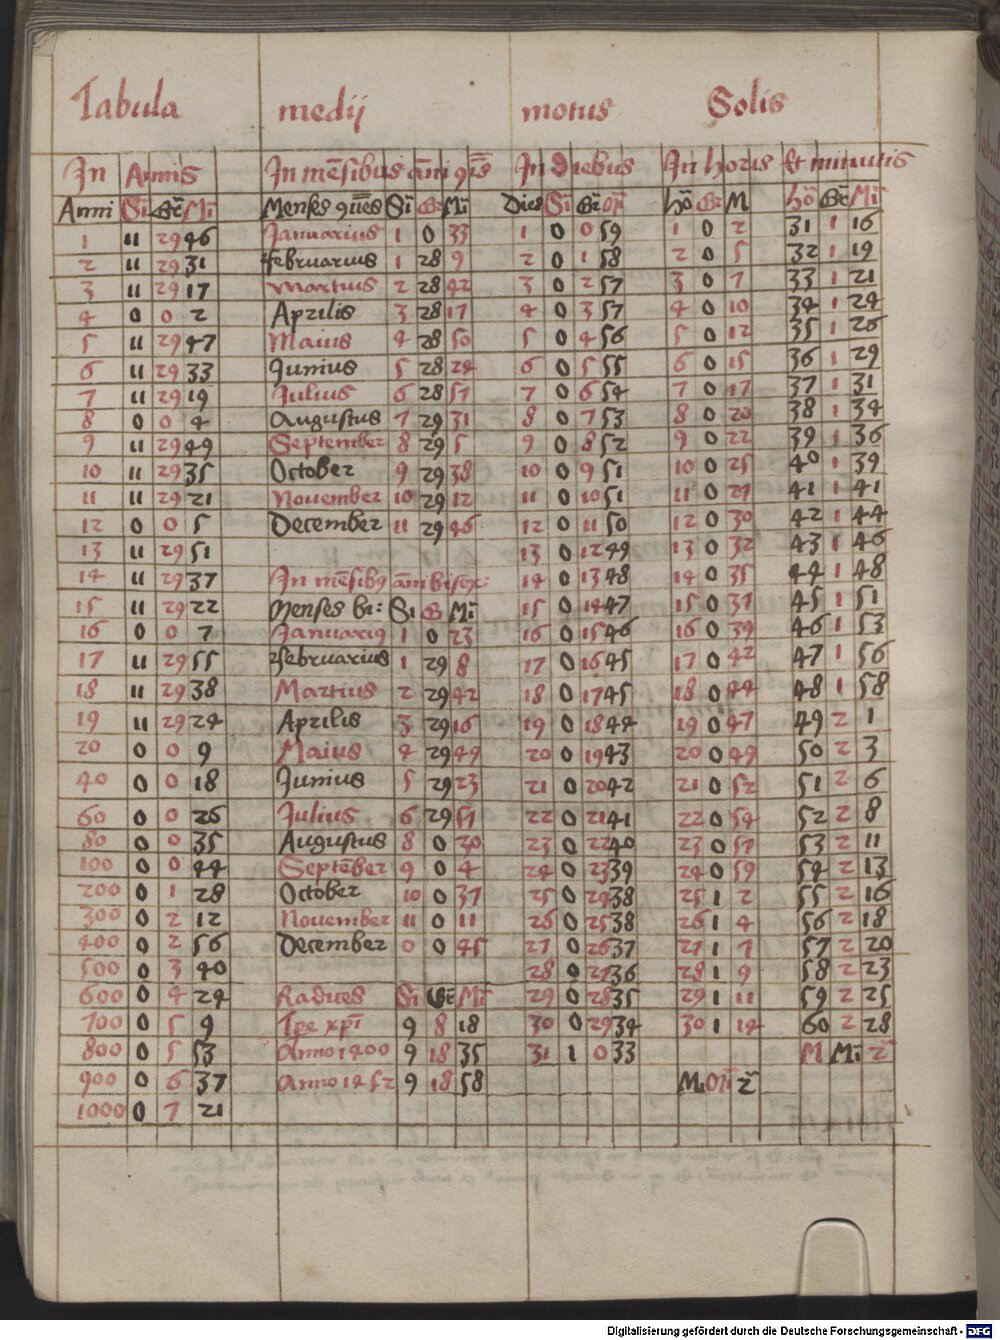 Tabula medij motus Solis
In Annis In mēsibus āni 9īs In Diebus In horis Et minutis
Anni Si Gr Mi Menses 9ūes Si Gr Mi Dies Si Gr Mi ho Gr M ho Gr Mi
1 11 29 46 Januarius 1 0 33 1 0 0 59 1 0 2 31 1 16
2 11 29 31 februarius 1 28 9 2 0 1 58 2 0 5 32 1 19
3 11 29 17 Martius 2 28 42 3 0 2 57 3 0 7 33 1 21
4 0 0 2 Aprilis 3 28 17 4 0 3 57 4 0 10 34 1 24
5 11 29 47 Maius 4 28 50 5 0 4 56 5 0 12 35 1 26
6 11 29 33 Junius 5 28 24 6 0 5 55 6 0 15 36 1 29
7 11 29 19 Julius 6 28 57 7 0 6 54 7 0 17 37 1 31
8 0 0 4 Augustus 7 29 31 8 0 7 53 8 0 20 38 1 34
9 11 29 49 September 8 29 5 9 0 8 52 9 0 22 39 1 36
10 11 29 35 October 9 29 38 10 0 9 51 10 0 25 40 1 39
11 11 29 21 November 10 29 12 11 0 10 51 11 0 27 41 1 41
12 0 0 5 December 11 29 46 12 0 11 50 12 0 30 42 1 44
13 11 29 51 13 0 12 49 13 0 32 43 1 46
14 11 29 37 In mēsib9 āni bisex: 14 0 13 48 14 0 35 44 1 48
15 11 29 22 Menses bi: Si G Mi 15 0 14 47 15 0 37 45 1 51
16 0 0 7 Januari9 1 0 23 16 0 15 46 16 0 39 46 1 53
17 11 29 55 februarius 1 29 8 17 0 16 45 17 0 42 47 1 56
18 11 29 38 Martius 2 29 42 18 0 17 45 18 0 44 48 1 58
19 11 29 24 Aprilis 3 29 16 19 0 18 44 19 0 47 49 2 1
20 0 0 9 Maius 4 29 49 20 0 19 43 20 0 49 50 2 3
40 0 0 18 Junius 5 29 23 21 0 20 42 21 0 52 51 2 6
60 0 0 26 Julius 6 29 57 22 0 21 41 22 0 54 52 2 8
80 0 0 35 Augustus 8 0 30 23 0 22 40 23 0 57 53 2 11
100 0 0 44 Septēber 9 0 4 24 0 23 39 24 0 59 54 2 13
200 0 1 28 October 10 0 37 25 0 24 38 25 1 2 55 2 16
300 0 2 12 November 11 0 11 26 0 25 38 26 1 4 56 2 18
400 0 2 56 December 0 0 45 27 0 26 37 27 1 7 57 2 20
500 0 3 40 28 0 27 36 28 1 9 58 2 23
600 0 4 24 Radices Si Gr Mi 29 0 28 35 29 1 11 59 2 25
700 0 5 9 Tpe xpi 9 8 18 30 0 29 34 30 1 14 60 2 28
800 0 5 53 Anno 1400 9 18 35 31 1 0 33 M Mi 2
900 0 6 37 Anno 1452 9 18 58 M Mi 2
1000 0 7 21
Digitalisierung gefördert durch die Deutsche Forschungsgemeinschaft - DFG